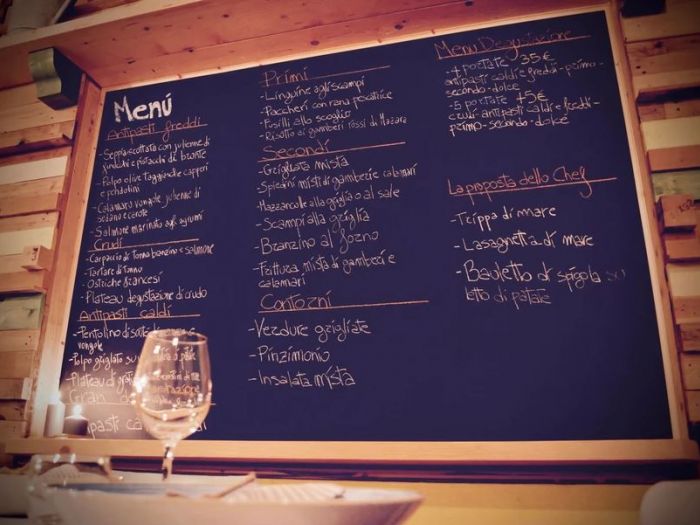 Menú
Antipasti freddi
- Seppia scottata con julienne di
finocchi e pistacchi di bronte
- Polpo olive taggiasche capperi
e pomodorini
- Calamaro vongole julienne di
sedano e carote
- Salmone marinato agli agrumi
Crudi
- Carpaccio di Tonno branzino e salmone
- Tartare di Tonno
- Ostriche francesi
- Plateau degustazione di crudo
Antipasti caldi
- Pentolino di
vongole
- Polpo grigliato su di patate
- Plateau di
Gran
antipasti
Primi
- Linguine agli scampi
- Paccheri con rana pescatrice
- Fusilli allo scoglio
- Risotto ai gamberi rossi di Mazara
Secondi
- Grigliata mista
- Spiedini misti di gamberi e calamari
- Mazzancolle alla griglia o al sale
- Scampi alla griglia
- Branzino al forno
- Frittura mista di gamberi e
calamari
Contorni
- Verdure grigliate
- Pinzimonio
- Insalata mista
Menu Degustazione
- 4 portate 35€
antipasti caldi e freddi - primo -
secondo - dolce
- 5 portate 45€
crudi antipasti caldi e freddi -
primo - secondo - dolce
La proposta dello Chef
- Trippa di mare
- Lasagnetta di mare
- Bauletto di spigola su
letto di patate